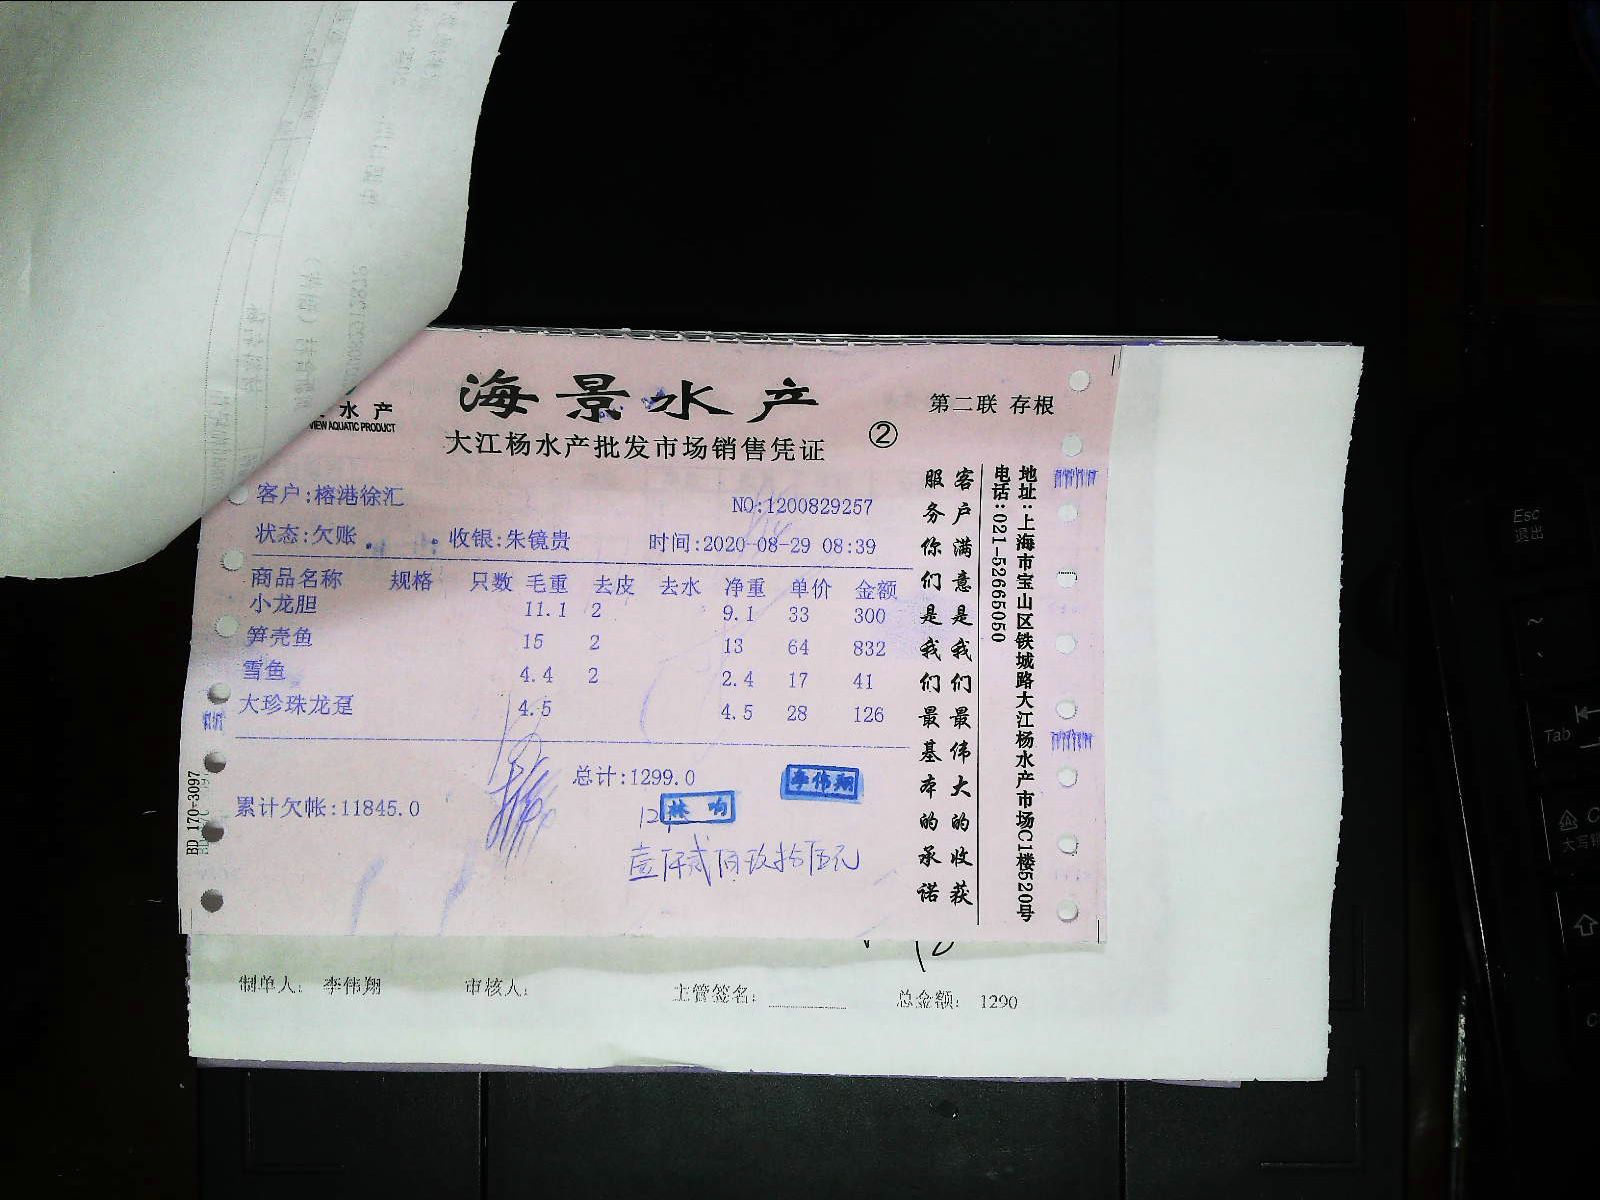 海景水产
水产
VIEW AQUATIC PRODUCT
大江杨水产批发市场销售凭证
②
第二联 存根
客户:榕港徐汇
NO:1200829257
状态:欠账
收银:朱镜贵
时间:2020-08-29 08:39
商品名称 规格 只数 毛重 去皮 去水 净重 单价 金额
小龙胆 11.1 2 9.1 33 300
笋壳鱼 15 2 13 64 832
雪鱼 4.4 2 2.4 17 41
大珍珠龙趸 4.5 4.5 28 126
总计:1299.0
李伟翔
累计欠帐:11845.0
林 响
壹仟贰佰玖拾伍元
客户满意是我们最伟大的收获
服务你们是我们最基本的承诺
地址:上海市宝山区铁城路大江杨水产市场C1楼520号
电话:021-52665050
BD 170-3097
制单人: 李伟翔 审核人: 主管签名: 总金额: 1290
Esc
退出
Tab